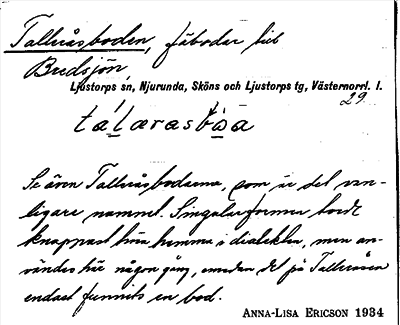 Tallråsboden, fäbodar vid
Bredsjön,
Ljustorps sn, Njurunda, Sköns och Ljustorps tg, Västernorrl. l.
29
Se även Tallråsbodarna, som är det van-
ligare namnet. Singularformen torde
knappast höra hemma i dialekten, men an-
vändes här någon gång, emedan det på Tallråsen
endast funnits en bod.
ANNA-LISA ERICSON 1934